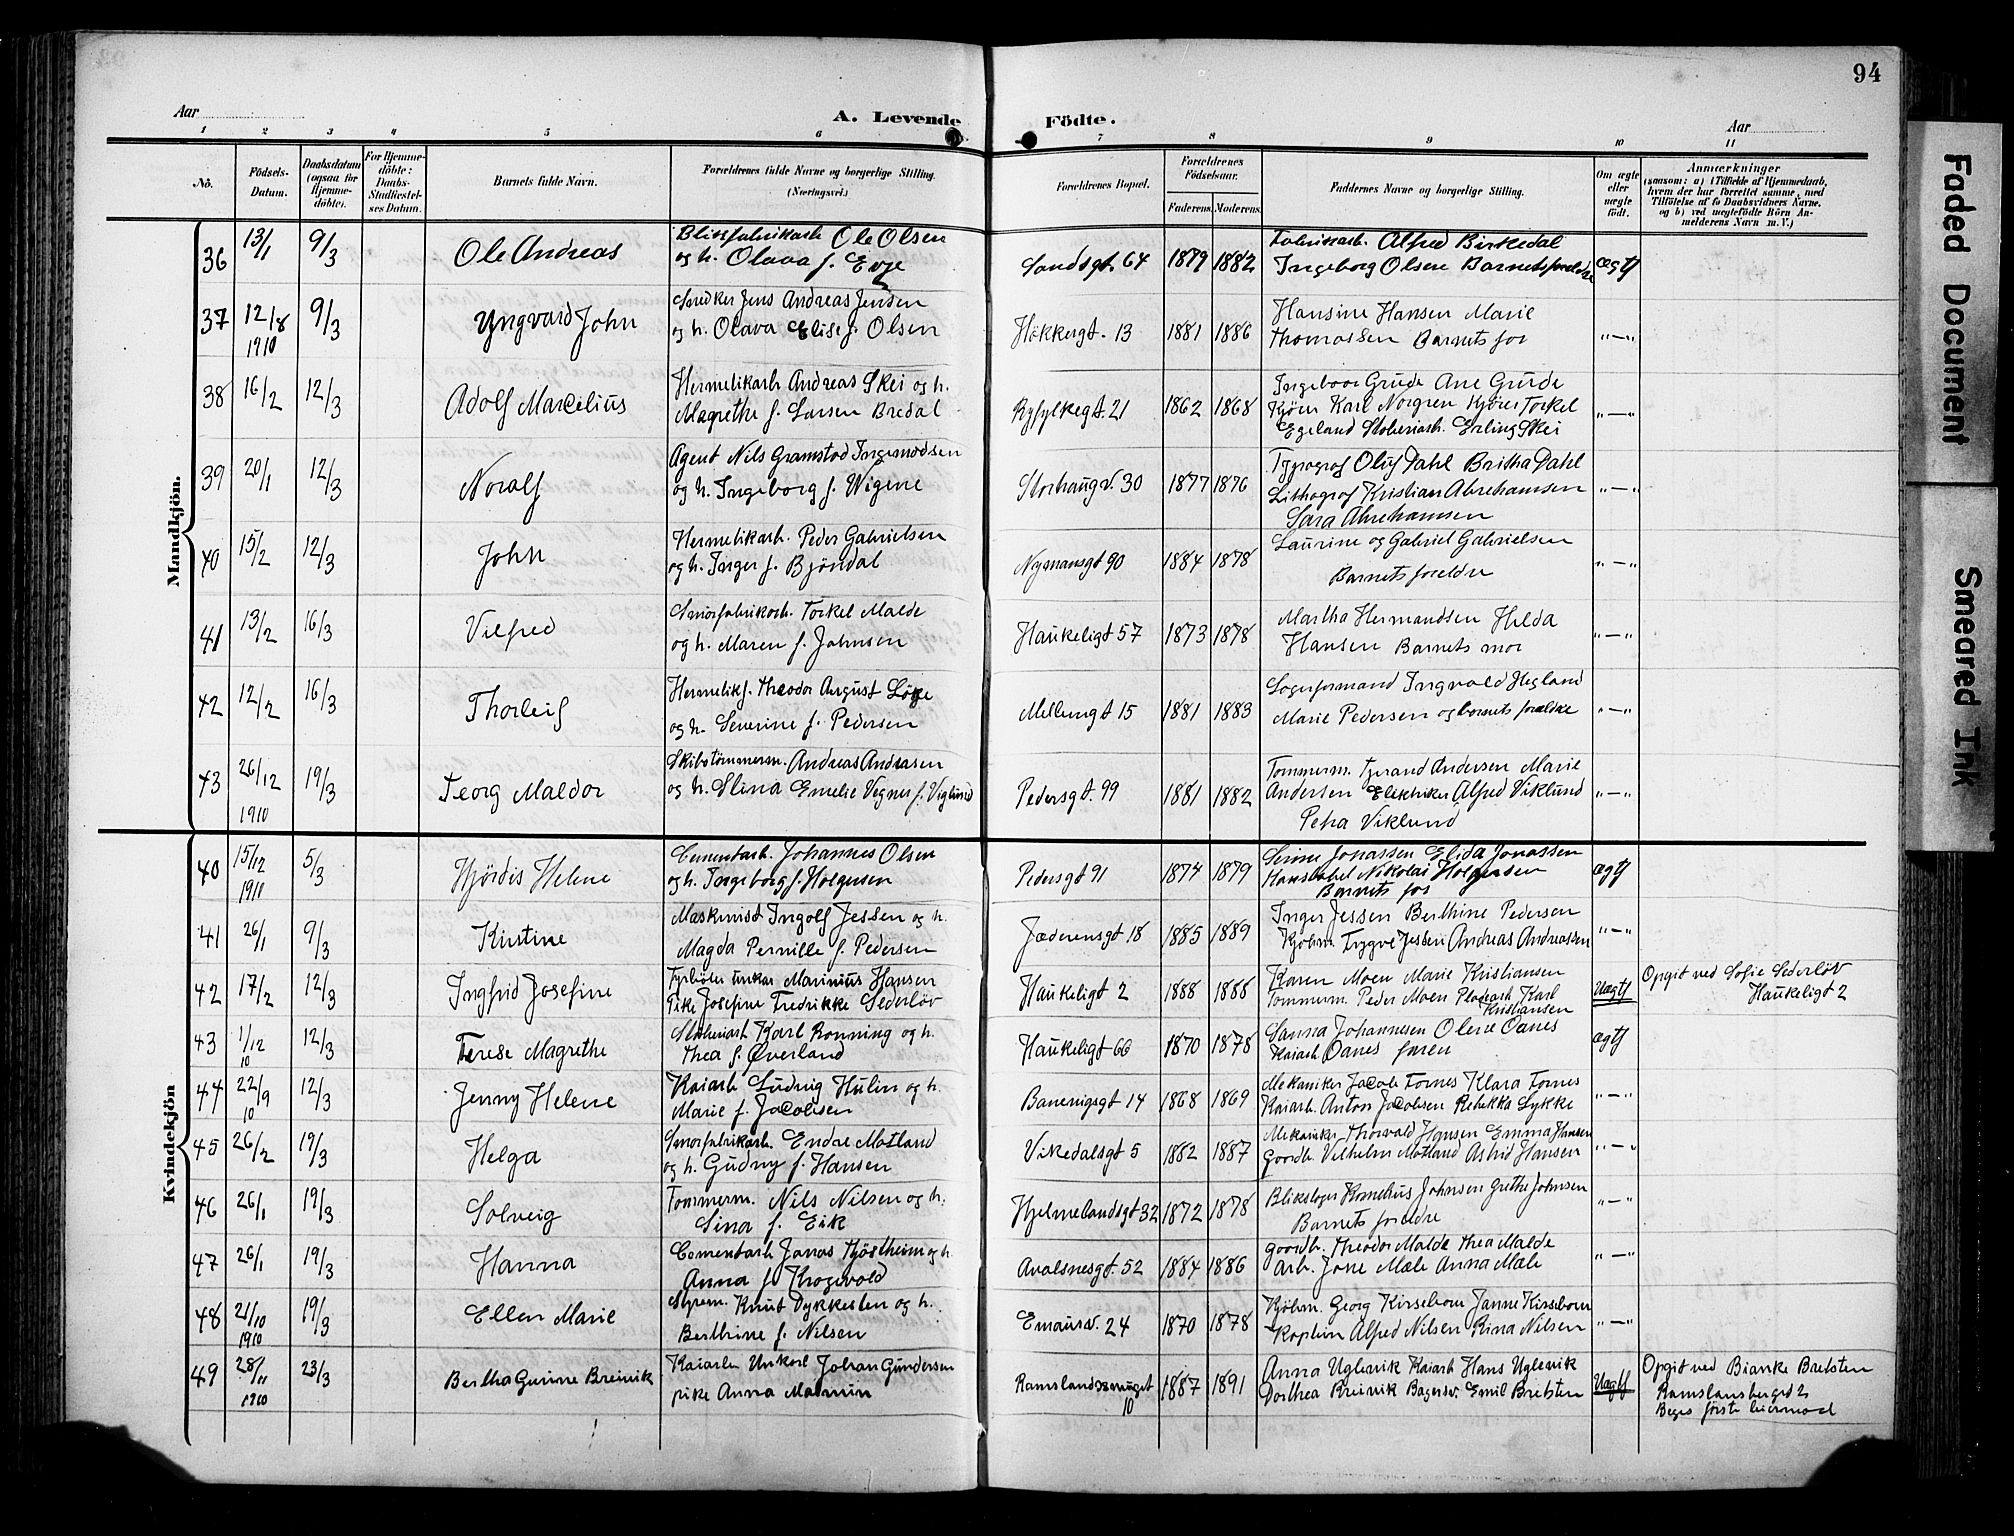 94
Aar
A. Levende Födte.
Aar
1 2 3 4 5 6 7 8 9 10 11
Nö.
Födsels-
Datum.
Daabsdatum
(ogsaa for
Hjemme-
döbte).
For Hjemme-
döbte:
Daabs-
Stadfæstel-
ses Datum.
Barnets fulde Navn.
Forældrenes fulde Navne og borgerlige Stilling.
(Næringsvei.)
Forældrenes Bopæl.
Forældrenes
Födselsaar.
Faderens. Moderens.
Faddernes Navne og borgerlige Stilling.
Om ægte
eller
uægte
födt.
Anmærkninger
(saasom: a) i Tilfælde af Hjemmedaab,
hvem der har forrettet samme, med
Tilföielse af to Daabsvidners Navne.
og b) ved uægtefödte Börn An-
melderens Navn m. V.)
Mandkjön.
36 13/1 9/3 Ole Andreas Ole Olsen
og h. Olava f. Evje Sandsgt. 64 1879 1882 Fabrikarb. Alfred Birkedal
Ingeborg Olsen Barnets foreldre ægtf
37 12/8 1910 9/3 Yngvard John Snedker Jens Andreas Jensen
og h. Olava Elise f. Olsen Høkkergt. 13 1881 1886 Hansine Hansen Marie
Thomassen Barnets far "—"
38 16/2 12/3 Adolf Marcelius Hermetikarb Andreas Skei og h.
Magrethe f. Larsen Bredal Ryfylkegt. 21 1862 1868 Ingeborg Grude Ane Grude
Kjører Karl Norgren Kjører Torkel
Egeland Stoberiarb. Erling Skei "—"
39 20/1 12/3 Noralf Agent Nils Gramstad Ingemodsen
og h. Ingeborg f. Wigene Storhaugv. 30 1877 1876 Typograf Oluf Dahl Britha Dahl
Lithograf Kristian Abrahamsen
Sara Abrahamsen "—"
40 15/2 12/3 John Hermetikarb. Peder Gabrielsen
og h. Inger f. Bjöndal Nymansgt 90 1884 1878 Laurine og Gabriel Gabrielsen
Barnets foreldre "—"
41 13/2 16/3 Vilfred Smorfabrikarb. Torkel Malde
og h. Maren f. Johnsen Haukeligt 57 1873 1878 Martha Hermandsen Hilda
Hansen Barnets mor "—"
42 12/2 16/3 Thorleif Hermetikf. Theodor August
og h. Severine f. Pedersen Mellemgt 15 1881 1883 Ingvald Hegland
Marie Pedersen og barnets foreldre "—"
43 26/12 1910 19/3 Georg Maldor Skibstömmerm. Andreas Andreasen
og h. Stina Emelie f. Viglund Pedersgt. 99 1881 1882 Tommerm. Andersen Marie
Andersen Elektriker Alfred Viklund
Petra Viklund "—"
Kvindekjön
40 15/12 1911 5/3 Hjördis Helene Cementarb. Johannes Olsen
og h. Ingeborg f. Holgersen Pedersgt 91 1874 1879 Jonassen Elida Jonassen
Nikolai Holgersen
Barnets far ægtf
41 26/1 9/3 Kirstine Maskinist Ingolf Jessen og h.
Magda Pernille f. Pedersen Jæderensgt 18 1885 1889 Inger Jessen Berthine Pedersen
Kjöbm. Trygve Jessen Andreas Andreassen "—"
42 17/2 12/3 Ingfrid Josefine Fyrböter unkar Marinius Hansen
Pike Josefine Fredrikke Sederlöv Haukeligt 2 1888 1888 Karen Moen Marie Kristiansen
Tommerm. Peder Moen Karl
Kristiansen Uægtf Opgit ved Sofie Sederlöv
Haukeligt 2
43 1/12 10 12/3 Terese Magrethe Stoberiarb Karl Ronning og h.
Thea f. Överland Haukeligt 66 1870 1878 Sanna Johannesen Olene Oanes
Kaiarb Oanes faren ægtf
44 22/9 10 12/3 Jenny Helene Kaiarb Ludvig Hulin og h.
Marie f. Jacobsen Banevigsgt 14 1868 1869 Mekaniker Jacob Tornes Klara Tornes
Kaiarb. Anton Jacobsen Rebekka Lykke "—"
45 26/2 19/3 Helga Smorfabrikarb. Endre Motland
og h. Gudny f. Hansen Vikedalsgt 5 1882 1887 Mekaniker Thorvald Hansen Emma Hansen
Gaardb. Vilhelm Motland Astrid Hansen "—"
46 26/1 19/3 Solveig Tommerm. Nils Nilsen og h.
Sina f. Eik Hjelmelandsgt 32 1872 1878 Blikslager Kornelius Johnsen Grethe Johnsen
Barnets foreldre "—"
47 26/1 19/3 Hanna Cementarb Jonas Hjöstheim og h.
Anna f. Avalsnesgt 52 1884 1886 Gaardb. Theodor Malde Thea Malde
Arb. Jone Mæle Anna Mæle "—"
48 21/10 1910 19/3 Ellen Marie Styrm. Knut Dykkesten og h.
Berthine f. Nilsen Emausv. 24 1870 1878 Kjöbm. Georg Kirsebom Janne Kirsebom
Kaptein Alfred Nilsen Rina Nilsen "—"
49 28/11 1910 23/3 Bertha Gurine Breivik Kaiarb Unkarl Johan Gundersen
pike Anna Malmin Ramslandssmuget
10 1887 1891 Anna Uglevik Kaiarb Hans Uglevik
Dorthea Breivik Bagersv. Emil Bretsten Uægtf Opgit ved Bianke Bretsten
2
Beges förste leiermaal
Faded Document
Smeared Ink